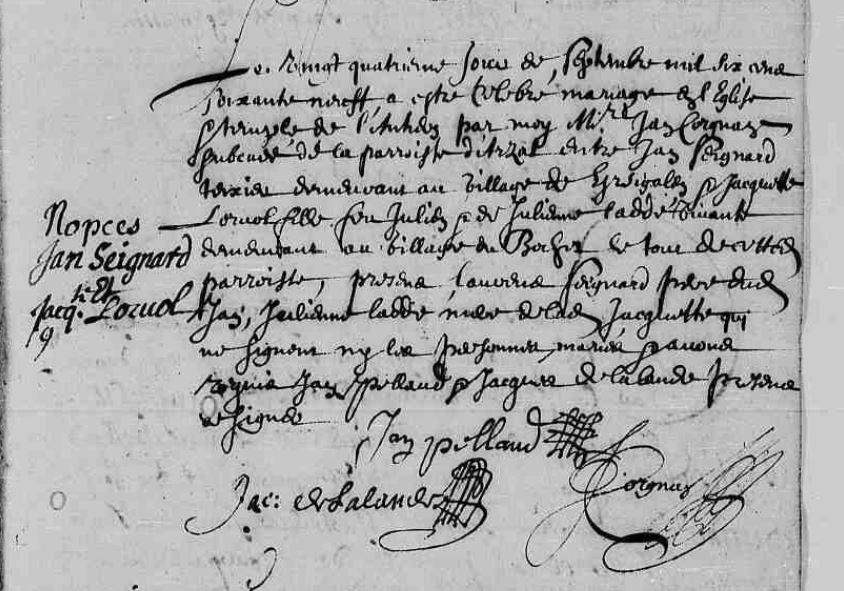 Le vingt quatriesme jour de Septembre mil six cens
soixante neuff, a estre celebré mariage en l'Eglise
temple de par moy Mi.re Jan Corgnax
subcuré de la parroisse d'Arzal entre Jan Seignard
demeurant au village de & Jacquette
Loruol fille feu Julien & de Julienne Laddé vivante
demeurant au village du Rocher le tout de cette
parroisse, presens Laurens Seignard pere dud.
Jan, Julienne Laddé mere de lad. Jacquette qui
ne signent ny les personnes mariés & avons
requis Jan Pellaud & Jacques de la Lande presens
et signés
Nopces
Jan Seignard
Et
Jacq.te Loruol
9
Jan Pellaud
Jac: de Lalande
Corgnax